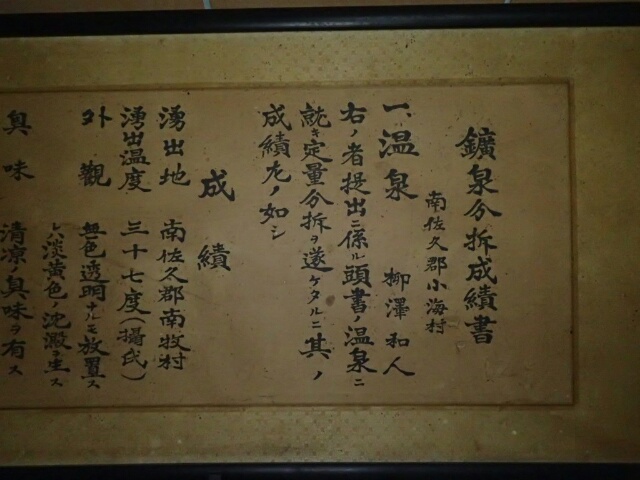 鑛泉分拆成績書
南佐久郡小海村
一、温泉 柳澤和人
右ノ者提出ニ係ル頭書ノ温泉ニ
就キ定量分拆ヲ遂ケタルニ其ノ
成績左ノ如シ
成績
湧出地 南佐久郡南牧村
湧出温度 三十七度(攝氏)
外觀 無色透明ナルモ放置ス
レハ淡黄色ノ沈澱ヲ生ス
臭味 清凉ノ臭味ヲ有ス